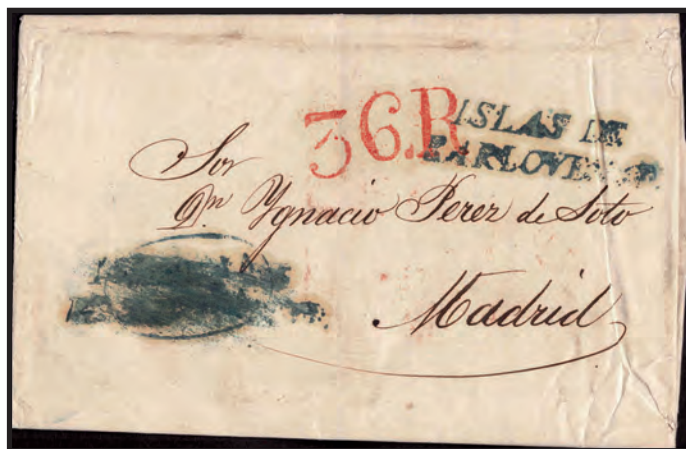 36.R
ISLAS DE
BARLOVENTO
Sor
Dn. Ygnacio Perez de Soto
Madrid